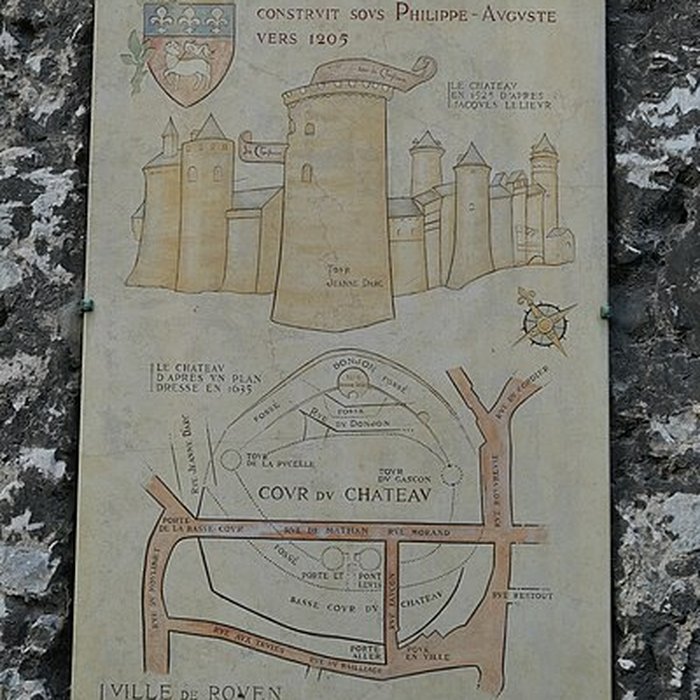 CONSTRVIT SOVS PHILIPPE-AVGVSTE
VERS 1205
LE CHATEAV
EN 1525 D'APRES
JACQVES LELIEVR
TOVR
JEANNE DARC
LE CHATEAV
D'APRES VN PLAN
DRESSE EN 1635
DONJON
FOSSÉ
FOSSÉ
RVE
DV DONJON
RVE JEANNE DARC
RVE DV CORDIER
TOVR
DE LA PVCELLE
TOVR
DV GASCON
COVR DV CHATEAV
RVE BOVVREVIL
PORTE
DE LA BASSE-COVR
RVE DE MATHAN
RVE MORAND
FOSSÉ
PORTE ET
PONT
LEVIS
BASSE COVR DV CHATEAV
RVE FAVCON
RVE RESTOVT
RVE DV BAILLIAGE
PORTE
ALLER
POVR
EN VILLE
VILLE DE ROVEN